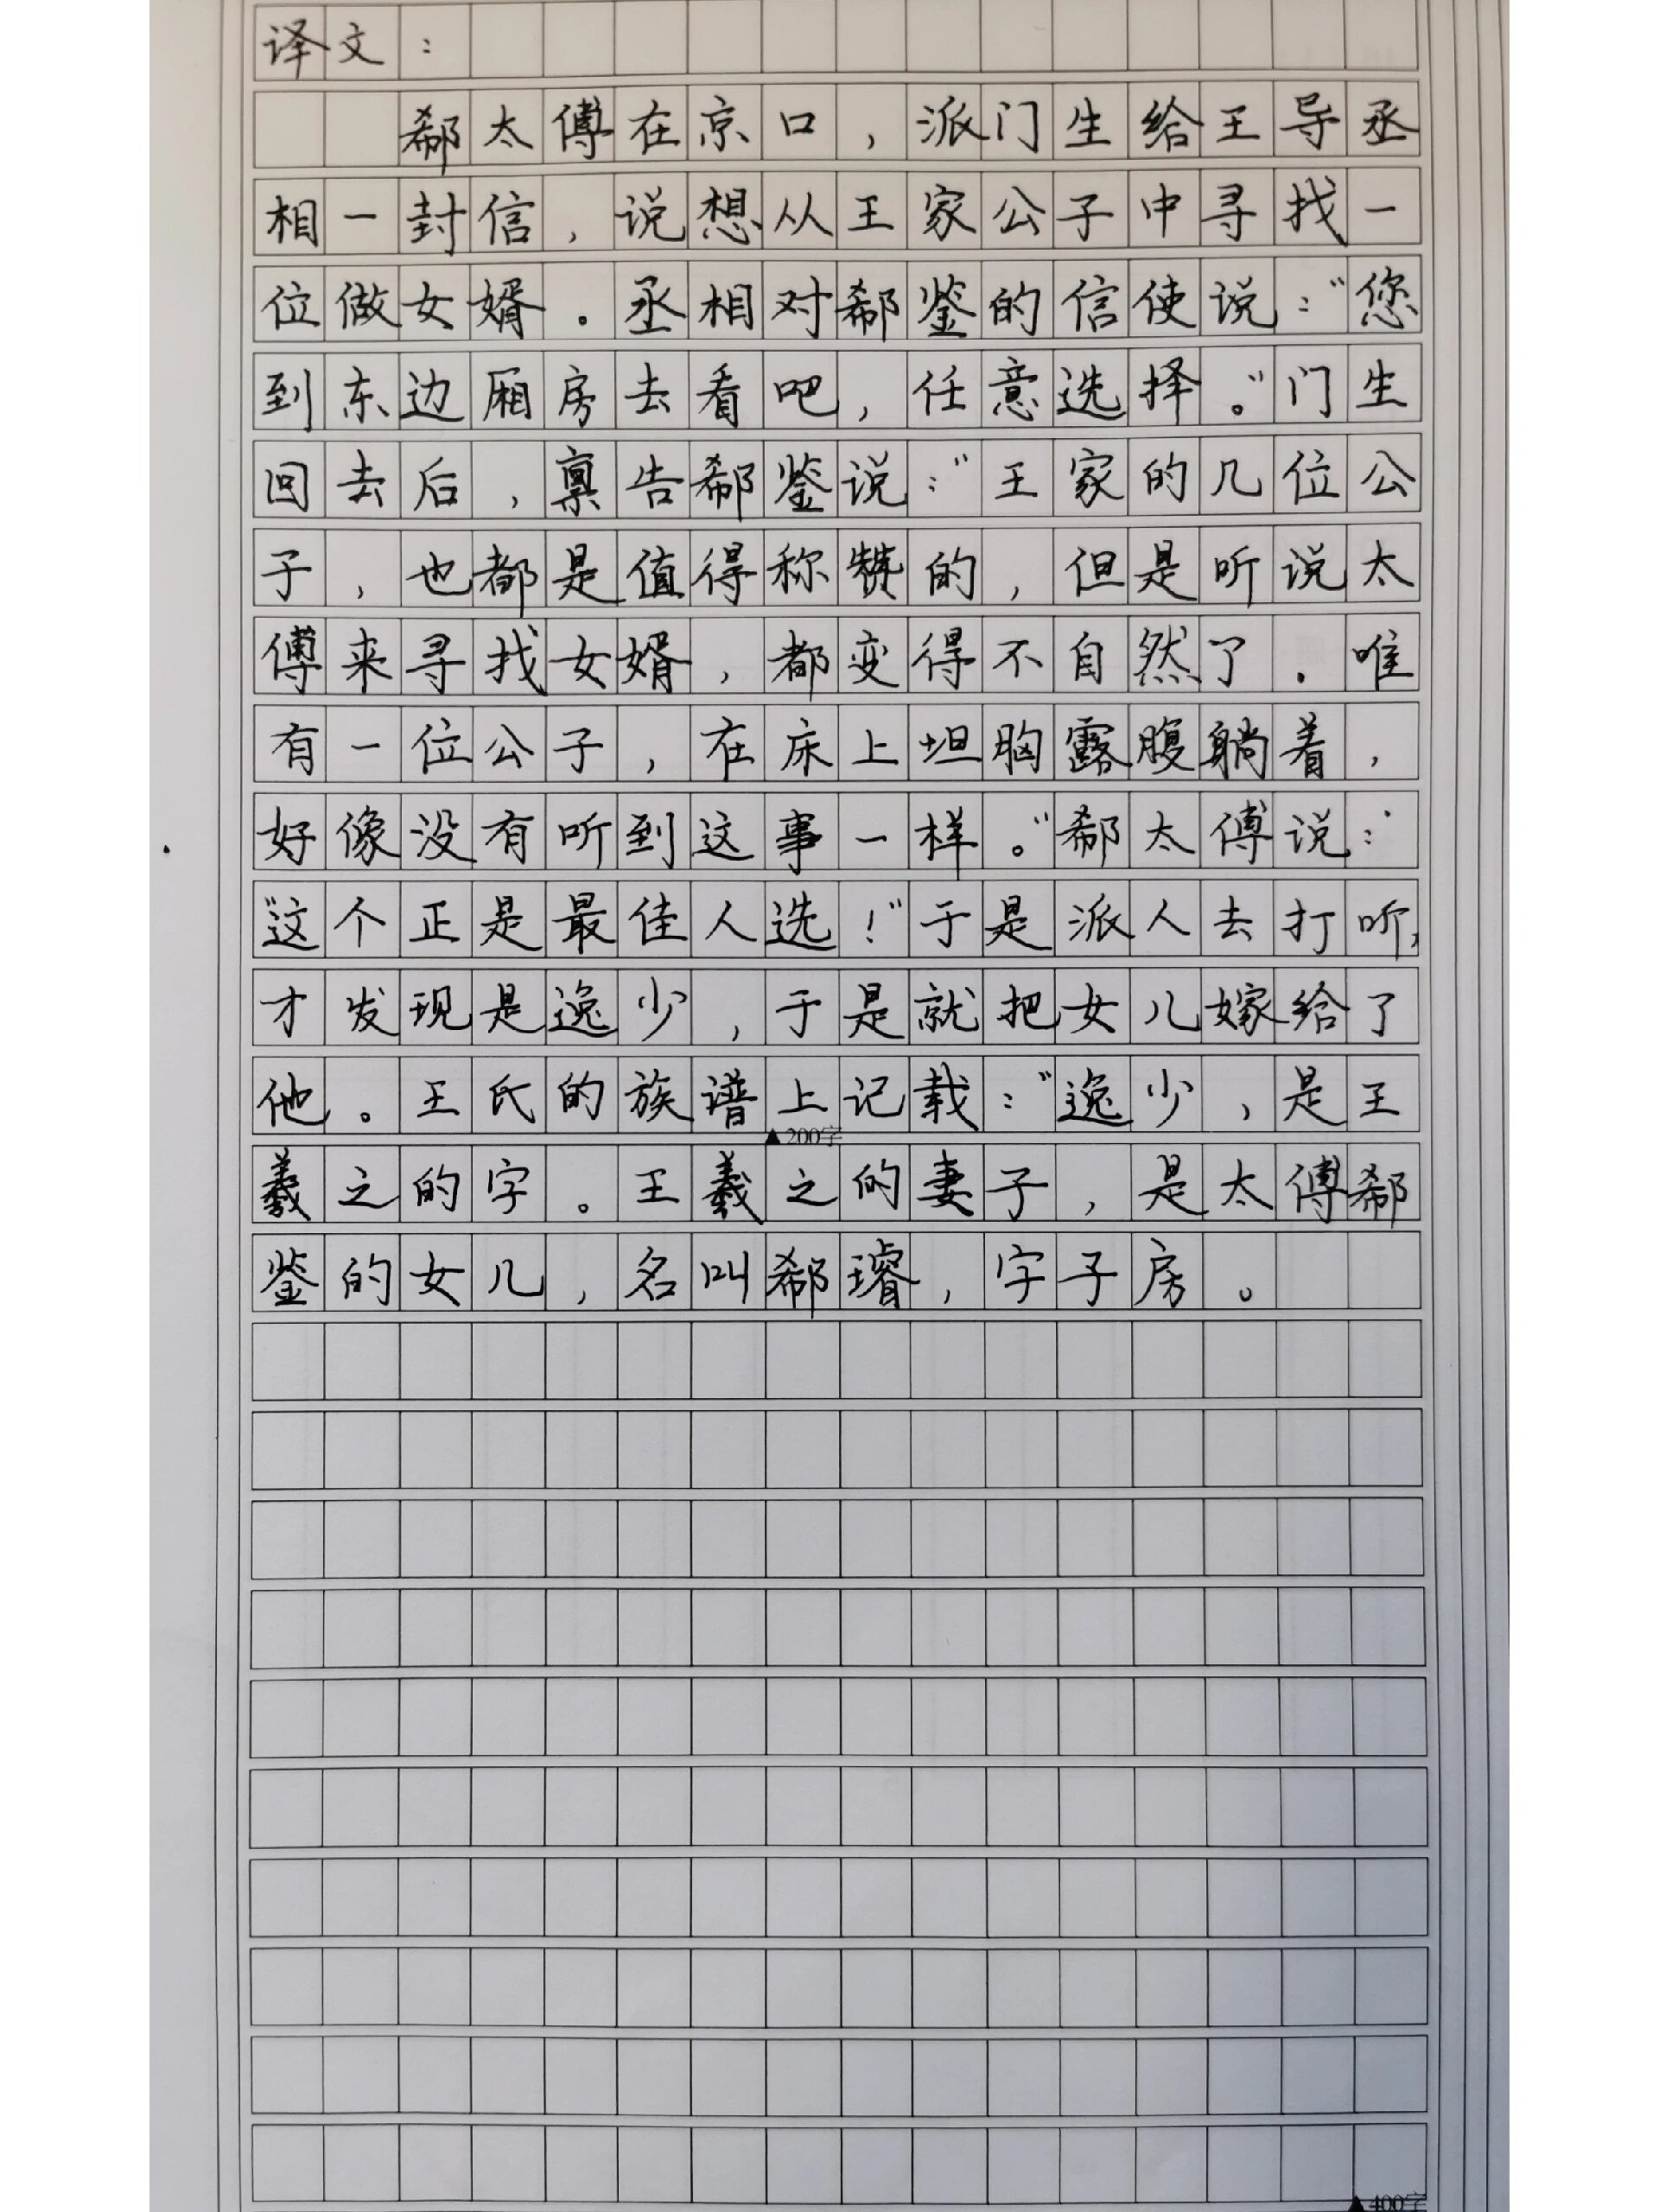 译文：
郗太傅在京口，派门生给王导丞
相一封信，说想从王家公子中寻找一
位做女婿。丞相对郗鉴的信使说：“您
到东边厢房去看吧，任意选择。”门生
回去后，禀告郗鉴说：“王家的几位公
子，也都是值得称赞的，但是听说太
傅来寻找女婿，都变得不自然了。唯
有一位公子，在床上坦胸露腹躺着，
好像没有听到这事一样。”郗太傅说：
“这个正是最佳人选！”于是派人去打听，
才发现是逸少，于是就把女儿嫁给了
他。王氏的族谱上记载：“逸少，是王
▲200字
羲之的字。王羲之的妻子，是太傅郗
鉴的女儿，名叫郗璿，字子房。
▲400字